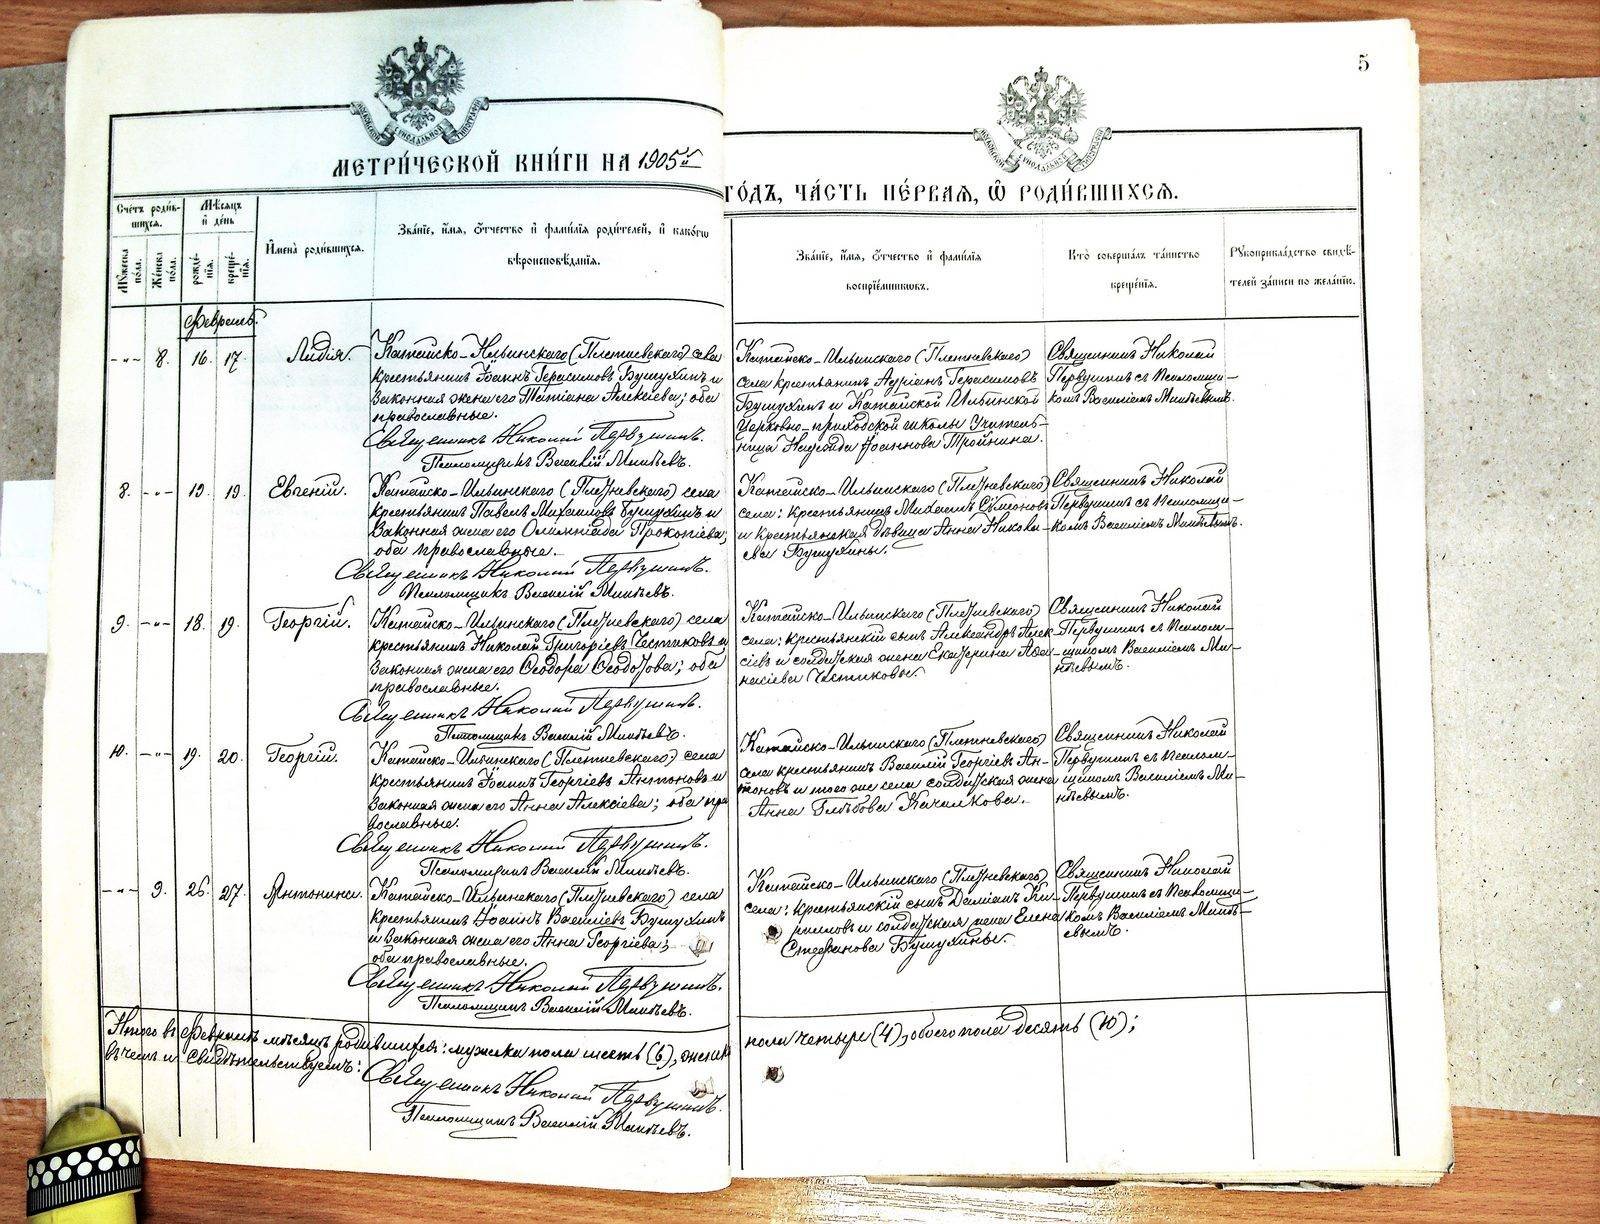 5
МЕТРИ́ЧЕСКОЙ КНИ́ГИ НА 1905й
ГО́ДЪ, ЧА́СТЬ ПЕ́РВАЯ, Ѡ҆ РОДИ́ВШИХСЯ.
Сче́тъ роди́в-
шихся.
Мꙋ́жеска по́ла.
Же́нска по́ла.
Мѣ́сяцъ
и҆ де́нь
рожде́-
нїя.
креще́-
нїя.
И҆мена̀ роди́вшихся.
Зва́нїе, и҆́мя, ѻ҆́тчество и҆ фами́лїя роди́телей, и҆ како́гѡ
вѣроисповѣ́данїя.
Зва́нїе, и҆́мя, ѻ҆́тчество и҆ фами́лїя
воспрїе́мникѡвъ.
Кто̀ соверша́лъ та́инство
креще́нїя.
Рꙋкоприкла́дство свидѣ́-
телей за́писи по жела́нїю.
Февраль.
-"- 8. 16. 17. Лидія.
Катайско-Ильинскаго (Плетневскаго) села
крестьянинъ Іоаннъ Герасимовъ Бушухинъ и
законная жена его Татіана Алексіева; оба
православные.
Священникъ Николай Первушинъ.
Псаломщикъ Василій Минѣевъ.
Катайско-Ильинскаго (Плетневскаго)
села крестьянинъ Адріанъ Герасимовъ
Бушухинъ и Катайской Ильинской
Церковно-приходской школы Учитель-
ница Надежда Іоаннова Тройнина.
Священникъ Николай
Первушинъ съ Псаломщи-
комъ Василіемъ Минѣевымъ.
8. -"- 19. 19. Евгеній.
Катайско-Ильинскаго (Плетневскаго) села
крестьянинъ Павелъ Михаиловъ Бушухинъ и
законная жена его Олимпіада Прокопіева;
оба православные.
Священникъ Николай Первушинъ.
Псаломщикъ Василій Минѣевъ.
Катайско-Ильинскаго (Плетневскаго)
села: крестьянинъ Михаилъ Симеоновъ
и крестьянская дѣвица Анна Никола-
ева Бушухины.
Священникъ Николай
Первушинъ съ Псаломщи-
комъ Василіемъ Минѣевымъ.
9. -"- 18. 19. Георгій.
Катайско-Ильинскаго (Плетневскаго) села
крестьянинъ Николай Григоріевъ Честиковъ и
законная жена его Ѳеодора Ѳеодотова; оба
православные.
Священникъ Николай Первушинъ.
Псаломщикъ Василій Минѣевъ.
Катайско-Ильинскаго (Плетневскаго)
села: крестьянскій сынъ Александръ Алек-
сіевъ и солдатская жена Екатерина Аѳа-
насіева Честиковы.
Священникъ Николай
Первушинъ съ Псалом-
щикомъ Василіемъ Ми-
нѣевымъ.
10. -"- 19. 20. Георгій.
Катайско-Ильинскаго (Плетневскаго) села
крестьянинъ Іоаннъ Георгіевъ Антоновъ и
законная жена его Анна Алексіева; оба пра
вославные.
Священникъ Николай Первушинъ.
Псаломщикъ Василій Минѣевъ.
Катайско-Ильинскаго (Плетневскаго)
села крестьянинъ Василій Георгіевъ Ан-
тоновъ и того же села солдатская жена
Анна Глѣбова Качалкова.
Священникъ Николай
Первушинъ съ Псалом-
щикомъ Василіемъ Ми-
нѣевымъ.
-"- 9. 26. 27. Антонина.
Катайско-Ильинскаго (Плетневскаго) села
крестьянинъ Іоаннъ Василіевъ Бушухинъ
и законная жена его Анна Георгіева;
оба православные.
Священникъ Николай Первушинъ.
Псаломщикъ Василій Минѣевъ.
Катайско-Ильинскаго (Плетневскаго)
села: крестьянскій сынъ Даміанъ Ки-
рилловъ и солдатская жена Елена
Стефанова Бушухины.
Священникъ Николай
Первушинъ съ Псаломщи-
комъ Василіемъ Минѣ-
евымъ.
Итого въ Февралѣ мѣсяцѣ родившихся: мужска пола шесть (6), женска
пола четыре (4), обоего пола десять (10);
въ чемъ и свидѣтельствуемъ:
Священникъ Николай Первушинъ.
Псаломщикъ Василій Минѣевъ.